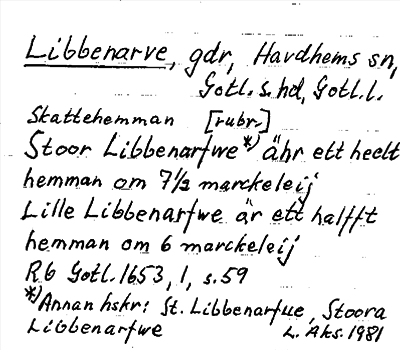 Libbenarve, gdr, Havdhems sn,
Gotl. s. hd, Gotl. l.
Skattehemman [rubr.]
Stoor Libbenarfwe*) ähr ett heelt
hemman om 7 1/2 marckeleij
Lille Libbenarfwe är ett halfft
hemman om 6 marckeleij
R6 Gotl. 1653, 1, s. 59
*) Annan hskr: St. Libbenarfue, Stoora
Libbenarfwe L. Aks. 1981